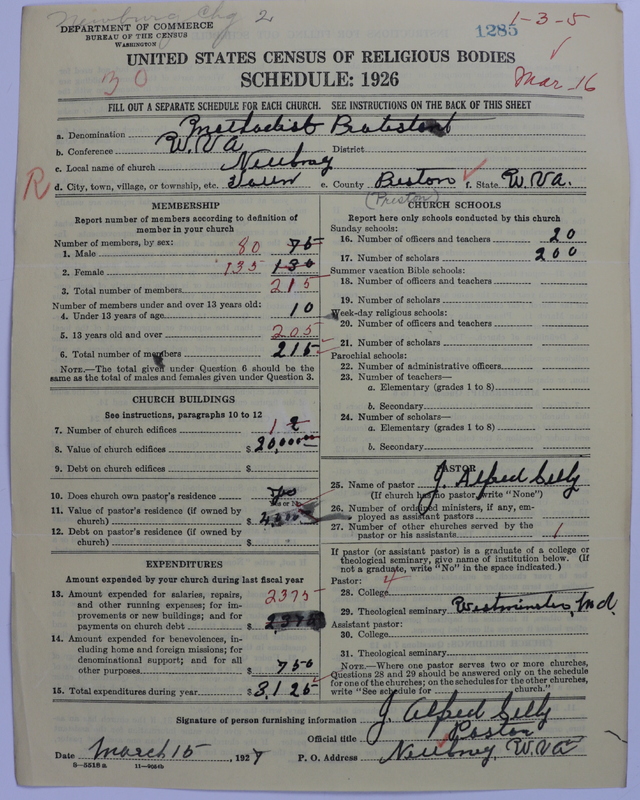 Newburg Chg 2
1-3-5
1285
DEPARTMENT OF COMMERCE
BUREAU OF THE CENSUS
WASHINGTON
UNITED STATES CENSUS OF RELIGIOUS BODIES
SCHEDULE: 1926
30
Mar-16
FILL OUT A SEPARATE SCHEDULE FOR EACH CHURCH. SEE INSTRUCTIONS ON THE BACK OF THIS SHEET
a. Denomination Methodist Protestant
b. Conference W.VA District
c. Local name of church Newburg
R d. City, town, village, or township, etc. Town e. County Preston f. State W.VA.
(Preston)
MEMBERSHIP
Report number of members according to definition of member in your church
Number of members, by sex:
1. Male 80 75
2. Female 135 130
3. Total number of members 215
Number of members under and over 13 years old:
4. Under 13 years of age 10
5. 13 years old and over 205
6. Total number of members 215
NOTE.—The total given under Question 6 should be the
same as the total of males and females given under Question 3.
CHURCH BUILDINGS
See instructions, paragraphs 10 to 12
7. Number of church edifices 1 2
8. Value of church edifices $20,000.00
9. Debt on church edifices $
10. Does church own pastor's residence yes
(Yes or No)
11. Value of pastor's residence (if owned by
church) $
12. Debt on pastor's residence (if owned by
church) $
EXPENDITURES
Amount expended by your church during last fiscal year
13. Amount expended for salaries, repairs, 2375
and other running expenses; for im-
provements or new buildings; and for
payments on church debt $2375
14. Amount expended for benevolences, in-
cluding home and foreign missions; for
denominational support; and for all
other purposes $ 750
15. Total expenditures during year $3,125
CHURCH SCHOOLS
Report here only schools conducted by this church
Sunday schools:
16. Number of officers and teachers 20
17. Number of scholars 200
Summer vacation Bible schools:
18. Number of officers and teachers
19. Number of scholars
Week-day religious schools:
20. Number of officers and teachers
21. Number of scholars
Parochial schools:
22. Number of administrative officers
23. Number of teachers—
a. Elementary (grades 1 to 8)
b. Secondary
24. Number of scholars—
a. Elementary (grades 1 to 8)
b. Secondary
PASTOR
25. Name of pastor J. Alfred Selby
(If church has no pastor write "None")
26. Number of ordained ministers, if any, em-
ployed as assistant pastors
27. Number of other churches served by the
pastor or his assistants 1
If pastor (or assistant pastor) is a graduate of a college or
theological seminary, give name of institution below. (If
not a graduate, write "No" in the space indicated.)
Pastor: 4
28. College
29. Theological seminary Westminster, Md.
Assistant pastor:
30. College
31. Theological seminary
NOTE.—Where one pastor serves two or more churches,
Questions 28 and 29 should be answered only on the schedule
for one of the churches; on the schedules for the other churches,
write "See schedule for church."
Signature of person furnishing information J. Alfred Selby
Official title Pastor
Date March 15 1927 P. O. Address Newburg, W.VA
8-5518 a 11-9664b